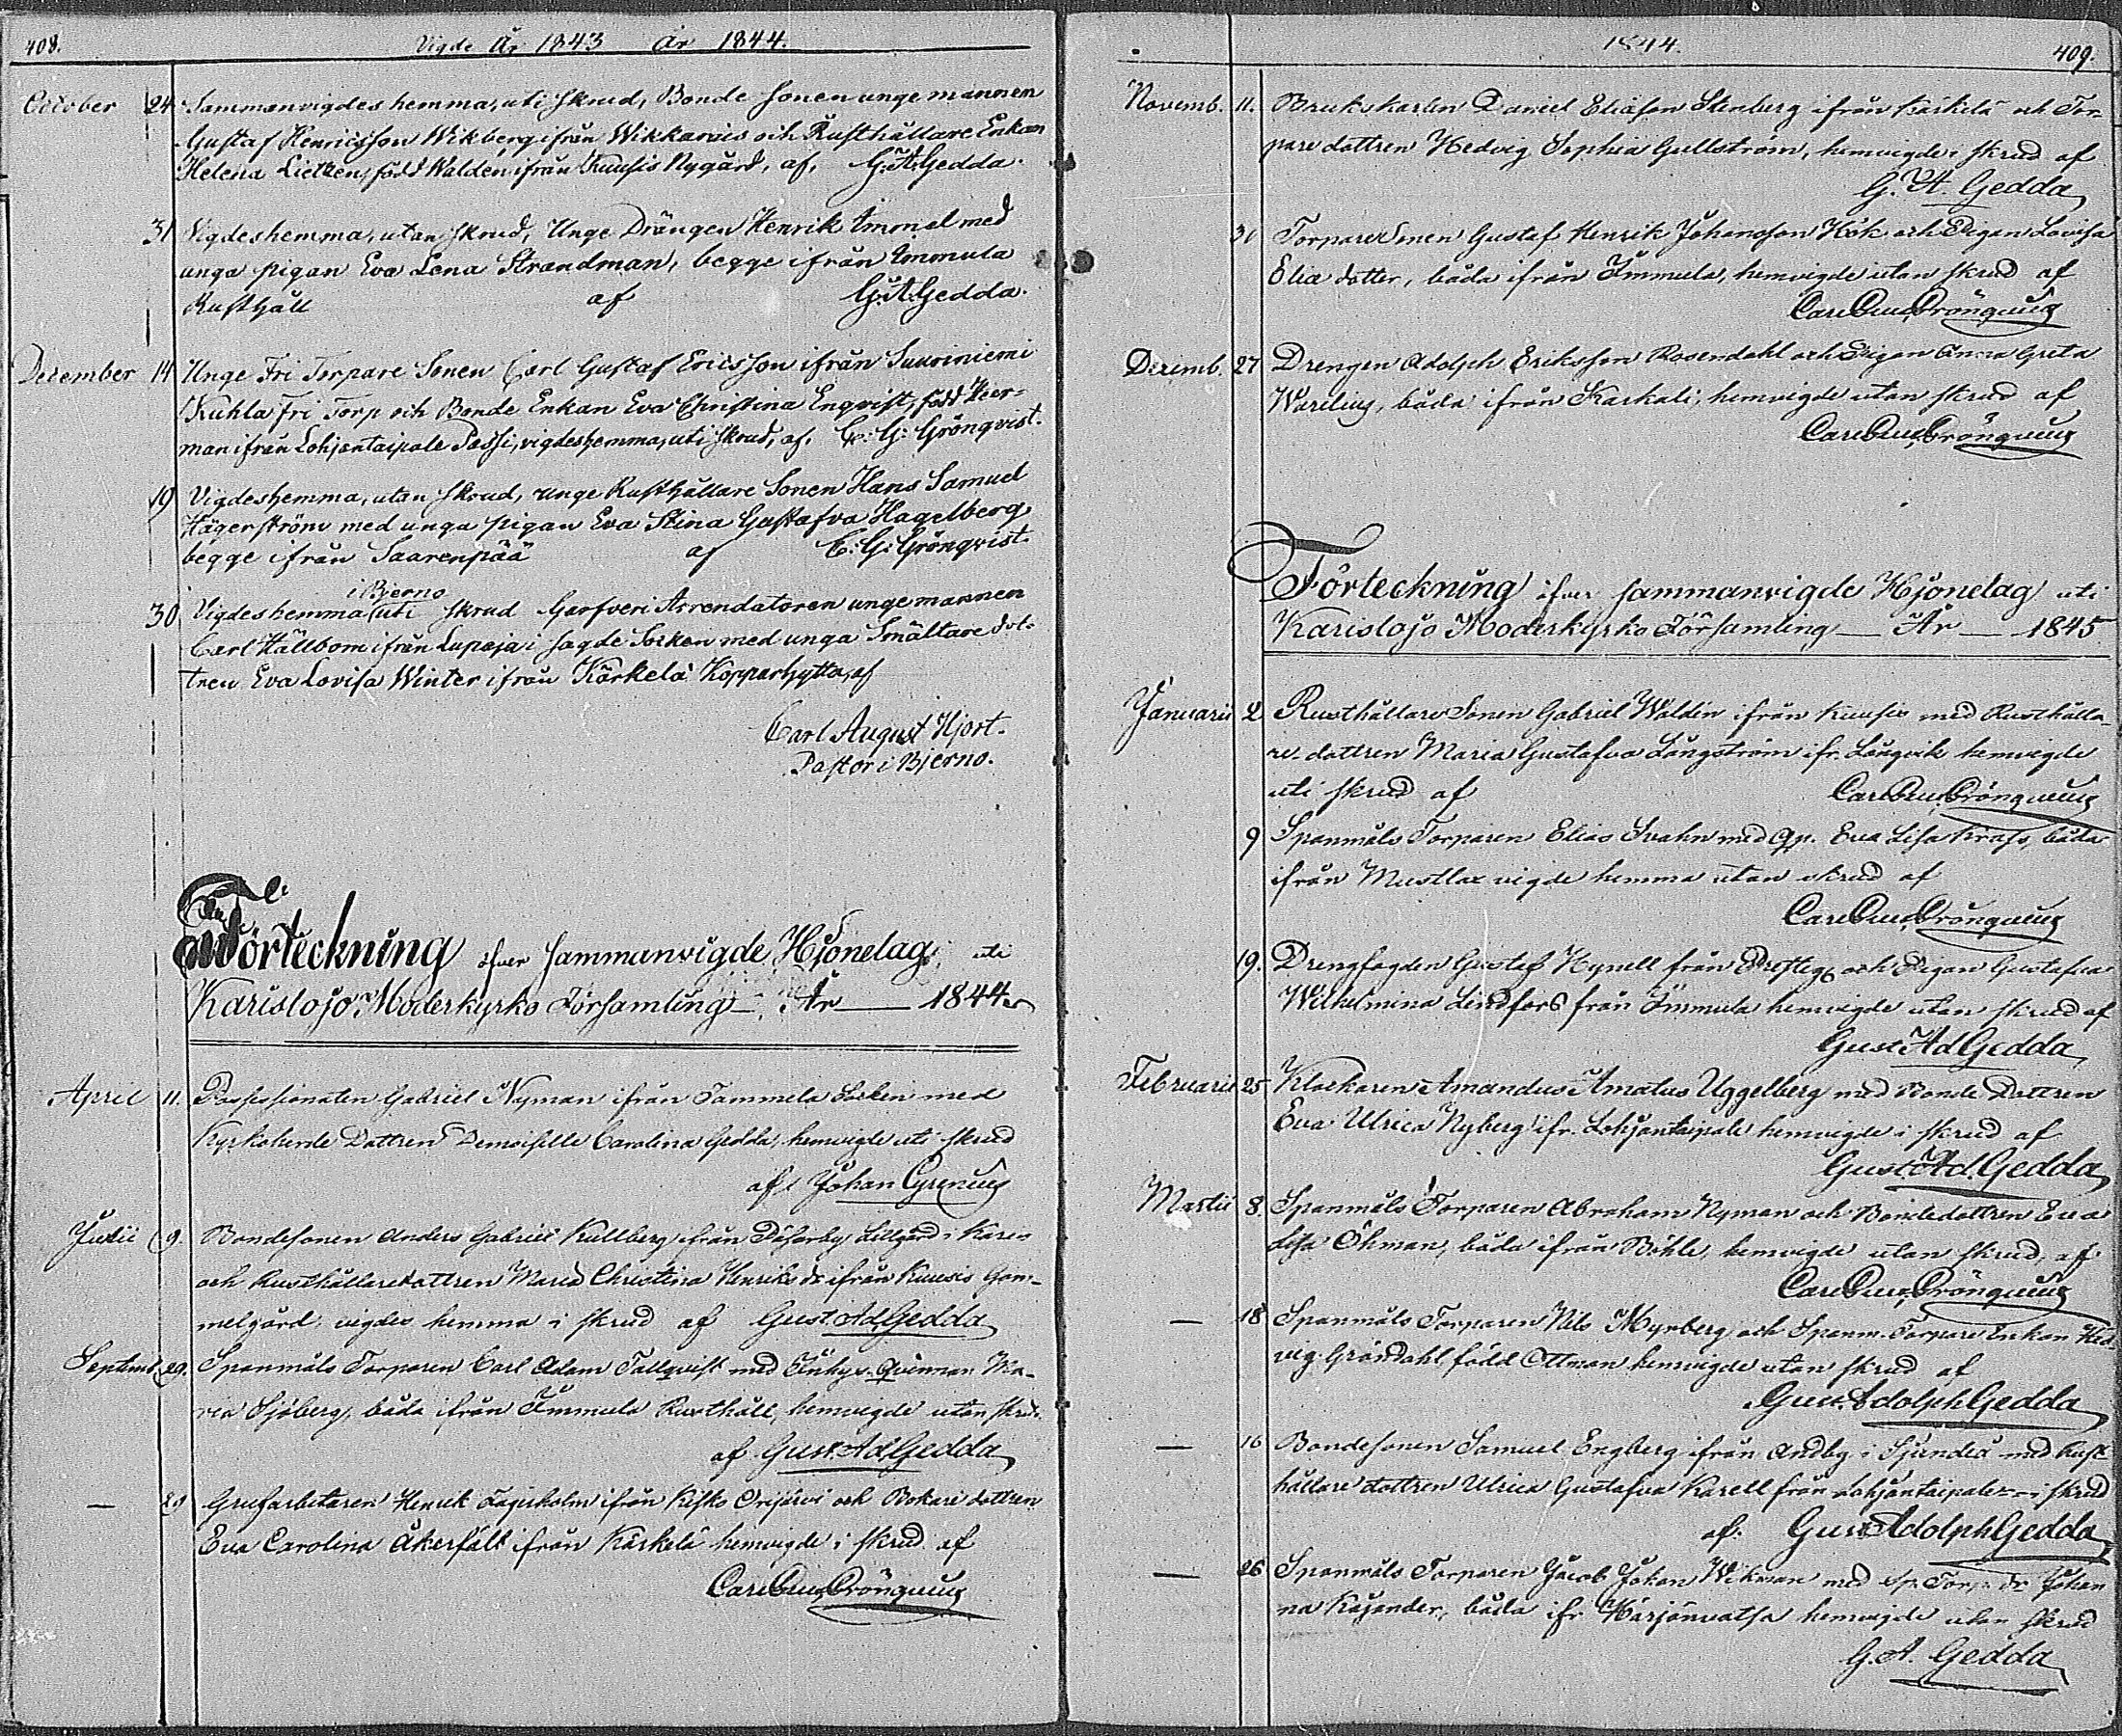 408.
Vigde År 1843 År 1844.
October 24 Sammanvigdes hemma, uti skrud, Bonde Sonen unge mannen
Gustaf Henricsson Wikberg ifrån Wikkarais och Rusthållare Enkan
Helena Lietzen, född Walden ifrån Kuusis Nygård, af, G:A:Gedda.
31 Vigdes hemma, utan skrud, Unge Drängen Henrik Immel med
unga pigan Eva Lena Strandman, begge ifrån Immula
Rusthåll af G:A:Gedda.
December 14 Unge Fri Torpare Sonen Carl Gustaf Ericsson ifrån Suurniemi
Kuhla Fri Torp och Bonde Enkan Eva Christina Enqvist, född Heer-
man ifrån Lohjantaipale Passi, vigdes hemma, uti skrud, af, C:G: Grönqvist.
19 Vigdes hemma, utan skrud, unge Rusthållare Sonen Hans Samuel
Hägerström med unga pigan Eva Stina Gustafva Hagelberg
begge ifrån Saarenpää af C:G:Grönqvist.
i Bjerno
30 Vigdes hemma uti skrud Garfveri Arrendatoren unge mannen
Carl Hällbom ifrån Lupaja i sagde Socken med unga Smältare dot-
tren Eva Lovisa Winter ifrån Kärkelä Kopparhytta, af
Carl August Hjort.
Pastor i Bjerno.
Förteckning öfver sammanvigde Hjonelag uti
Karislojo Moderkyrko Församling — År — 1844
April 11. Possessionaten Gabriel Nyman ifrån Tammela Socken med
Kyrkoherde Dottren Demoiselle Carolina Gedda hemvigde uti skrud
af Johan Cyrenius
Julii 9. Bondesonen Anders Gabriel Kullberg ifrån Lillgård i Karis
och Rusthållaredottren Maria Christina Henriksdr ifrån Kuusis Gam-
melgård, vigdes hemma i skrud af Gust. Ad. Gedda
Septemb. 29. Spanmåls Torparen Carl Adam Tallqvist med Qvinnan Ma-
ria Sjöberg, båda ifrån Immula Rusthåll, hemvigde utan skrud
af Gust. Ad. Gedda
— 29 Grufarbetaren Henrik Fagerholm ifrån Kisko Orijärvi och Bokare dottren
Eva Carolina Åkerfält ifrån Kärkelä hemvigde i skrud af
Carl Gust. Grönqvist
1844.
409.
Novemb. 11. Brukskarlen Daniel Eliasson Stenberg ifrån Kärkelä och Tor-
pare dottren Hedvig Sophia Gullström, hemvigde i skrud af
G. A. Gedda
30 TorpareSonen Gustaf Henrik Johansson Kök och Pigan Lovisa
Elia dotter, båda ifrån Immula, hemvigde utan skrud af
Carl Gust. Grönqvist
Decemb. 27 Drengen Adolph Eriksson Rosendahl och Pigan Anna Greta
Warelius, båda ifrån Karkali, hemvigde utan skrud af
Carl Gust. Grönqvist
Förteckning öfver sammanvigde Hjonelag uti
Karislojo Moderkyrko Församling — År — 1845
Januarii 2 Rusthållare Sonen Gabriel Waldén ifrån Kuusis med Rusthålla-
re-dottren Maria Gustafva Långström ifr. Långvik hemvigde
uti skrud af Carl Gust. Grönqvist
9 Spanmåls Torparen Elias Svahn med Qp. Eva Lisa Krass, båda
ifrån Mustlax vigde hemma utan skrud af
Carl Gust. Grönqvist
19. Drengfogden Gustaf Hyrell från och Pigan Gustafva
Wilhelmina Lindfors från Immula hemvigde utan skrud af
Gust. Ad Gedda
Februarii 25 Klockaren Amandus Amatus Uggelberg med Bonde Dottren
Eva Ulrica Nyberg ifr. Lohjantaipale hemvigde i skrud af
Gust. Ad. Gedda
Martii 8. Spanmåls Torparen Abraham Nyman och Bondedottren Eva
Lisa Öhman, båda ifrån Böhle, hemvigde utan skrud, af
Carl Gust. Grönqvist
— 18 Spanmåls Torparen Nils Myrberg och Spanm. Torpare Enkan Hed-
vig Gröndahl född Ottman hemvigde utan skrud af
Gust. Adolph Gedda
— 16 Bondesonen Samuel Engberg ifrån Andby i Sjundeå med Rust-
hållare dottren Ulrica Gustafva Karell från Lohjantaipale — i skrud
af. Gust. Adolph Gedda
— 26 Spanmåls Torparen Jacob Johan Wikman med Sp. Torp. dr Johan
na Kajander, båda ifr Härjänvatsa hemvigde utan skrud
G. A. Gedda